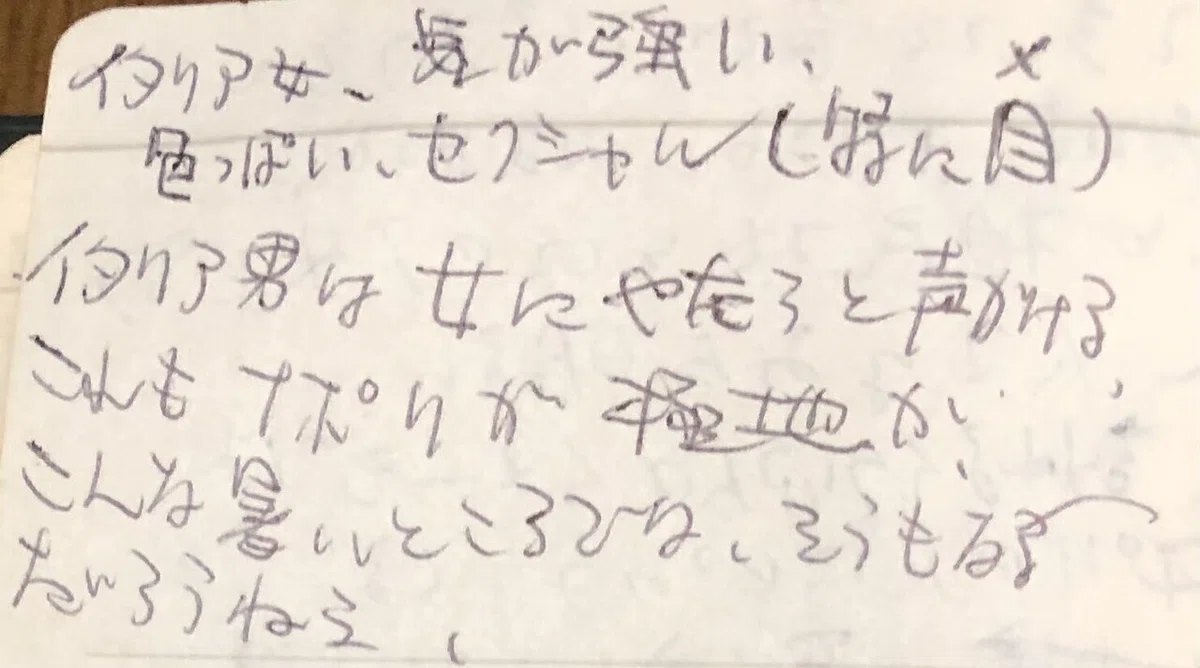 イタリア女、気が強い、
色っぽい、セクシャル(特に目)
イタリア男は女にやたらと声かける
これもナポリが極地か、
こんな暑いところでは、そうもなる
だろうねえ、